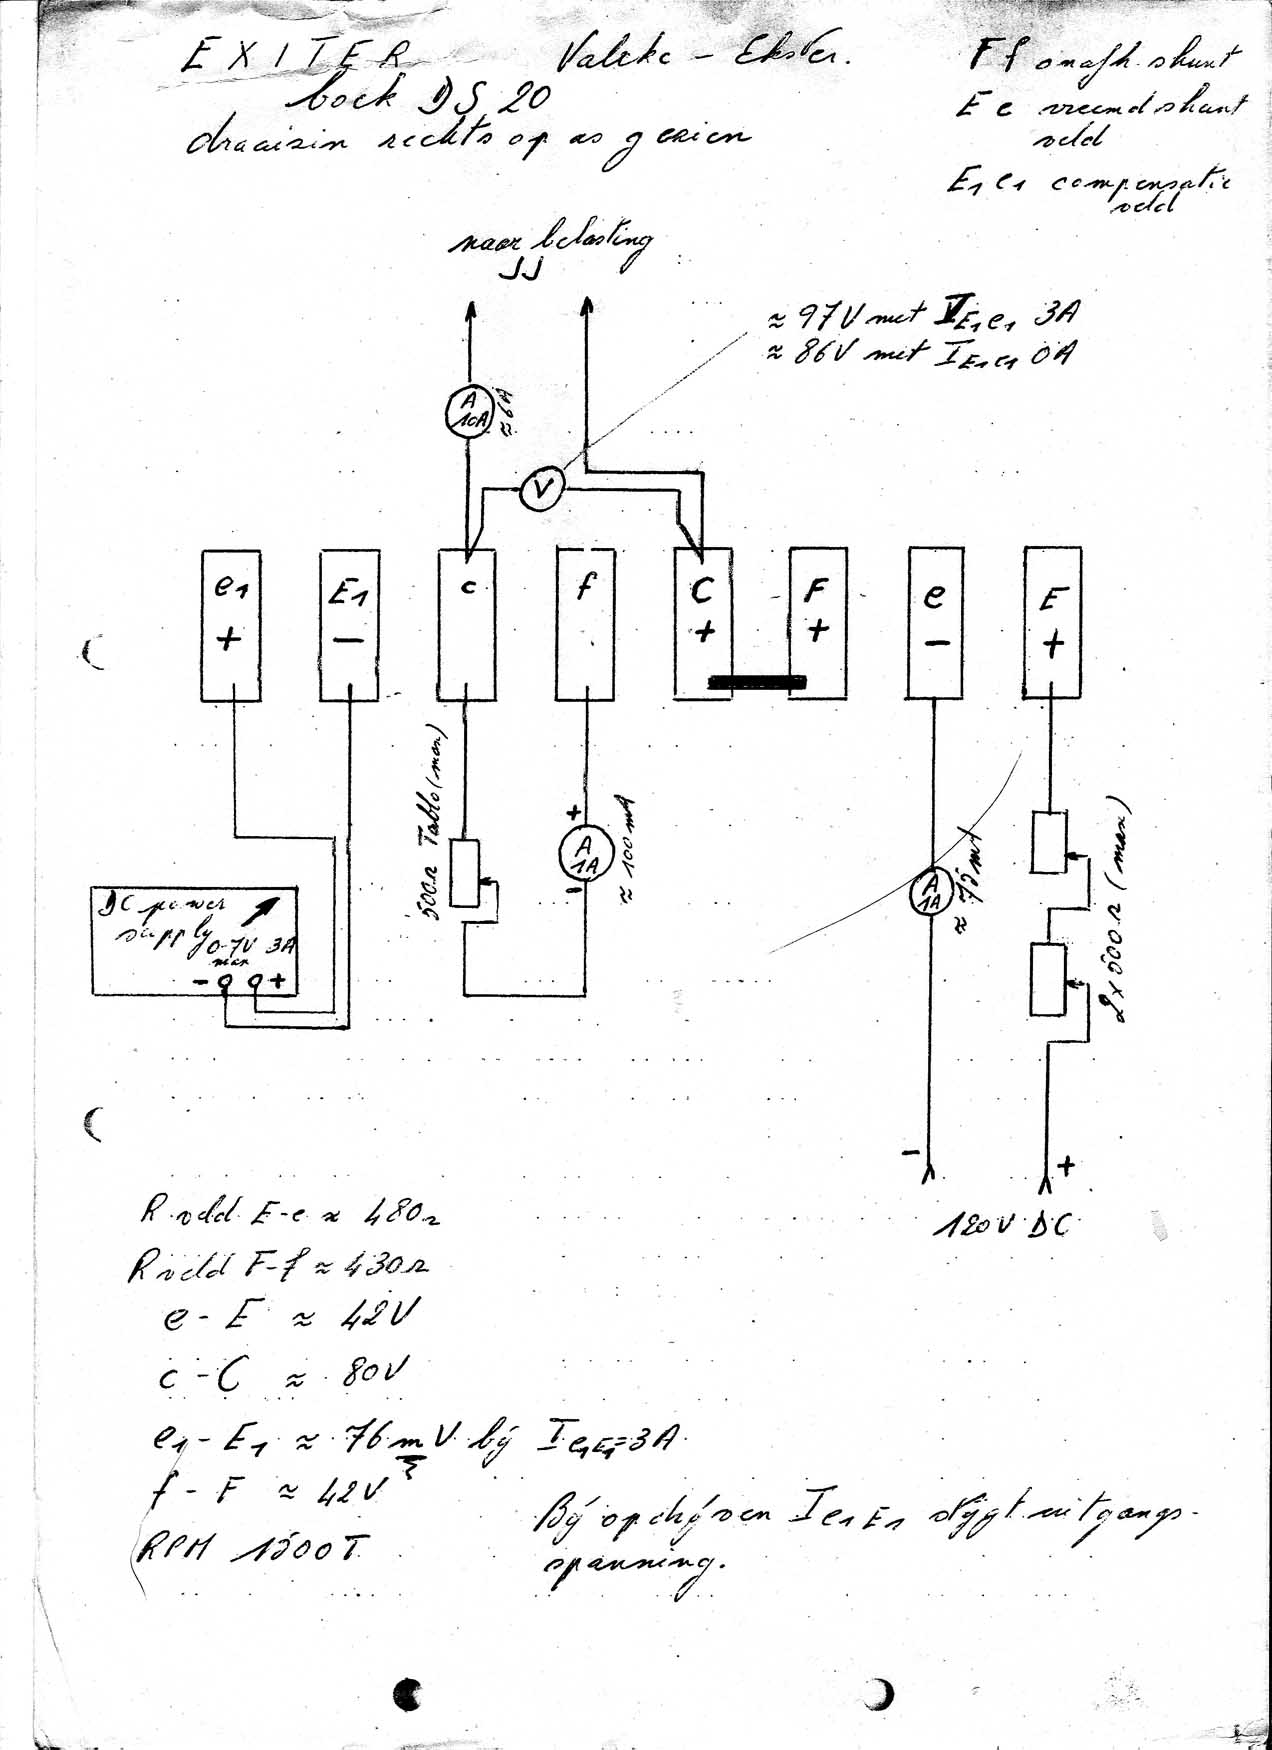 EXITER Valckc - Ekster.
boek DS 20
draaizin rechts op as gezien
Ff onafh. shunt
Ee vreemd shunt
veld
E1 e1 compensatie
veld
naar belasting
JJ
≈ 97V met VE1e1 3A
≈ 86V met IE1e1 0A
A
10A
≈ 6A
V
e1
+
E1
-
c
f
C
+
F
+
e
-
E
+
500Ω Tablo (max)
+
A
1A
-
≈ 100 mA
A
1A
≈ 75 mA
2 x 500Ω (max)
DC power
supply
0-7V 3A
max
- +
-
+
120V DC
R veld E-e ≈ 480Ω
R veld F-f ≈ 430Ω
e - E ≈ 42V
c - C ≈ 80V
e1 - E1 ≈ 76 mV bij Ie1E1=3A
f - F ≈ 42V
RPM 1500T
Bij opdrijven Ie1E1 stijgt uitgangs-
spanning.